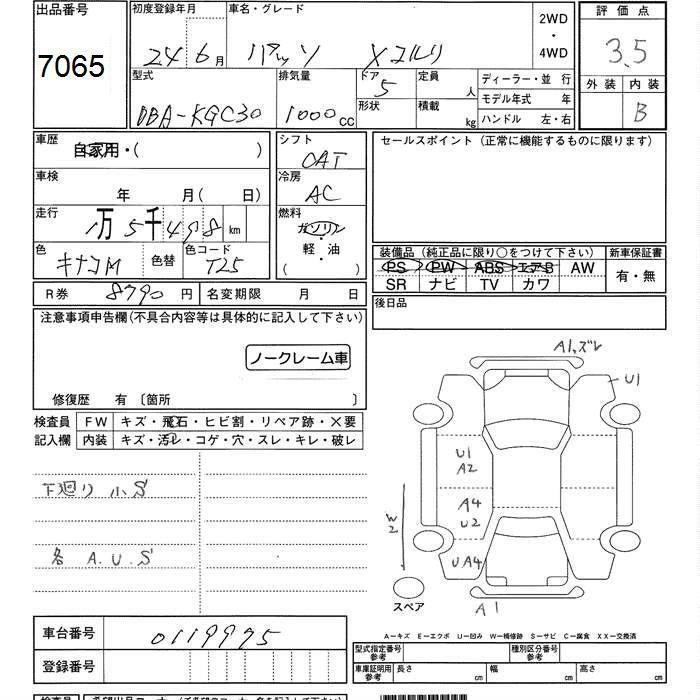 出品番号 初度登録年月 車名・グレード 2WD ・ 4WD 評価点
7065 24 6月 パッソ Xユルリ 3.5
型式 排気量 ドア 定員 ディーラー・並 行 外装 内装
DBA-KGC30 1000cc 5 人 モデル年式 年 B
形状 積載 kg ハンドル 左・右
車歴 自家用・( ) シフト OAT セールスポイント(正常に機能するものに限ります)
車検 年 月( 日) 冷房 AC
走行 1万5千498km 燃料 ガソリン
軽・油
( )
色 キナコM 色替 色コード T25
装備品(純正品に限り○をつけて下さい) 新車保証書
PS PW ABS エアB AW 有・無
SR ナビ TV カワ
R券 8790円 名変期限 月 日 後日品
注意事項申告欄(不具合内容等は具体的に記入して下さい)
ノークレーム車
修復歴 有 〔箇所 〕
検査員 FW キズ・飛石・ヒビ割・リペア跡・×要
記入欄 内装 キズ・汚レ・コゲ・穴・スレ・キレ・破レ
下廻り 小S
各 A.U.S
A1,ズレ
U1
U1
A2
A4
U2
W2
UA4
スペア
A1
A−キズ E−エクボ U−凹み W−補修跡 S−サビ C−腐食 XX−交換済
車台番号 0119975
型式指定番号 参考 種別区分番号 参考
登録番号
車庫証明用 参考 長さ cm 幅 cm 高さ cm